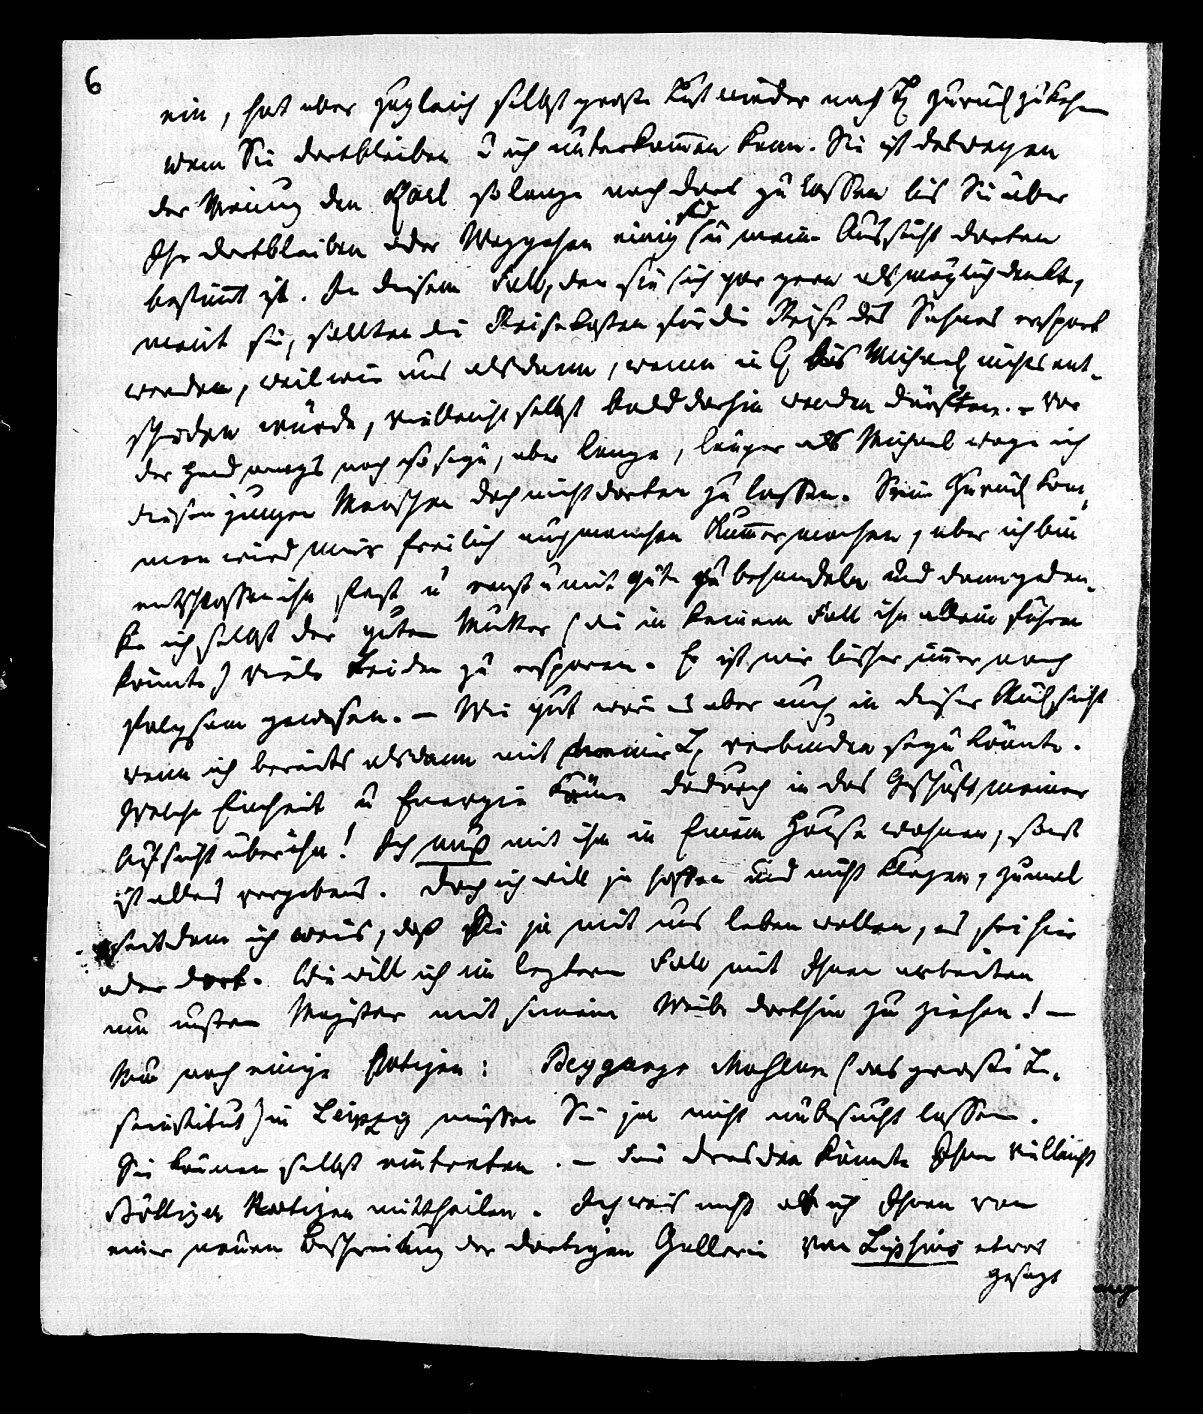 6
ein, hat aber zugleich selbst große Lust wieder nach L. zurückzukehren
wenn Sie dortbleiben u ich unterkommen kann. Sie ist deswegen
der Meinung den Karl so lange noch dort zu lassen bis Sie über
Ihr dortbleiben oder Weggehen einig sind u meine Aussicht dorten
bestimmt ist. In diesem Fall, den sie sich gar gern als möglich denkt,
meint sie, sollten die Reisekosten für die Reise des Sohnes erspart
werden, weil wir uns alsdann, wenn in bis Michael nichts ent-
schieden würde, vielleicht selbst bald dorthin wenden dürften. – Vor
der Hand mags noch so seyn, aber lange, länger als Michael wage ich
diesen jungen Menschen doch nicht dorten zu lassen. Sein Zurückkom-
men wird mir freilich auch manchen Kummer machen, aber ich bin
entschlossen ihn fest u ernst u mit Güte zu behandeln und dann geden-
ke ich selbst der guten Mutter (die in keinem Fall ihn allein führen
könnte) viele Leiden zu ersparen. Er ist mir bisher immer noch
folgsam gewesen. – Wie gut wär es aber auch in dieser Rücksicht
wenn ich bereits alsdann mit ihm in L. verbunden seyn könnte.
Welche Einheit u Energie käme dadurch in das Geschäft meiner
Aufsicht über ihn! Ich muß mit ihm in Einem Hause wohnen, sonst
ist alles vergebens. Doch ich will ja hoffen und nicht klagen, zumal
seitdem ich weis, daß Sie ja mit uns leben wollen, es sei hier
oder dort. Wie will ich im leztern Fall mit Ihnen arbeiten
um unsern Meister mit seinem Weibe dorthin zu ziehen! –
Nun noch einige Notizen: Beygangs Museum (das große Le-
seinstitut) in Leipzig müssen Sie ja nicht unbesucht lassen.
Sie können selbst eintreten. – Für Dresden könnte Ihnen vielleicht
Böttiger Notizen mittheilen. Ich weis nicht ob ich Ihnen von
einer neuen Beschreibung der dortigen Gallerie von Lipsius etwas
gesagt